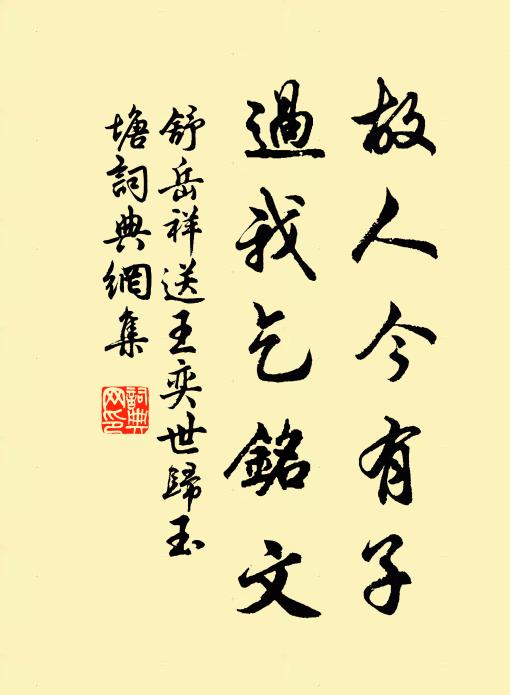 故人今有子
過我乞銘文
舒岳祥送王奕世歸玉
塘詞典網集
詞典
网印